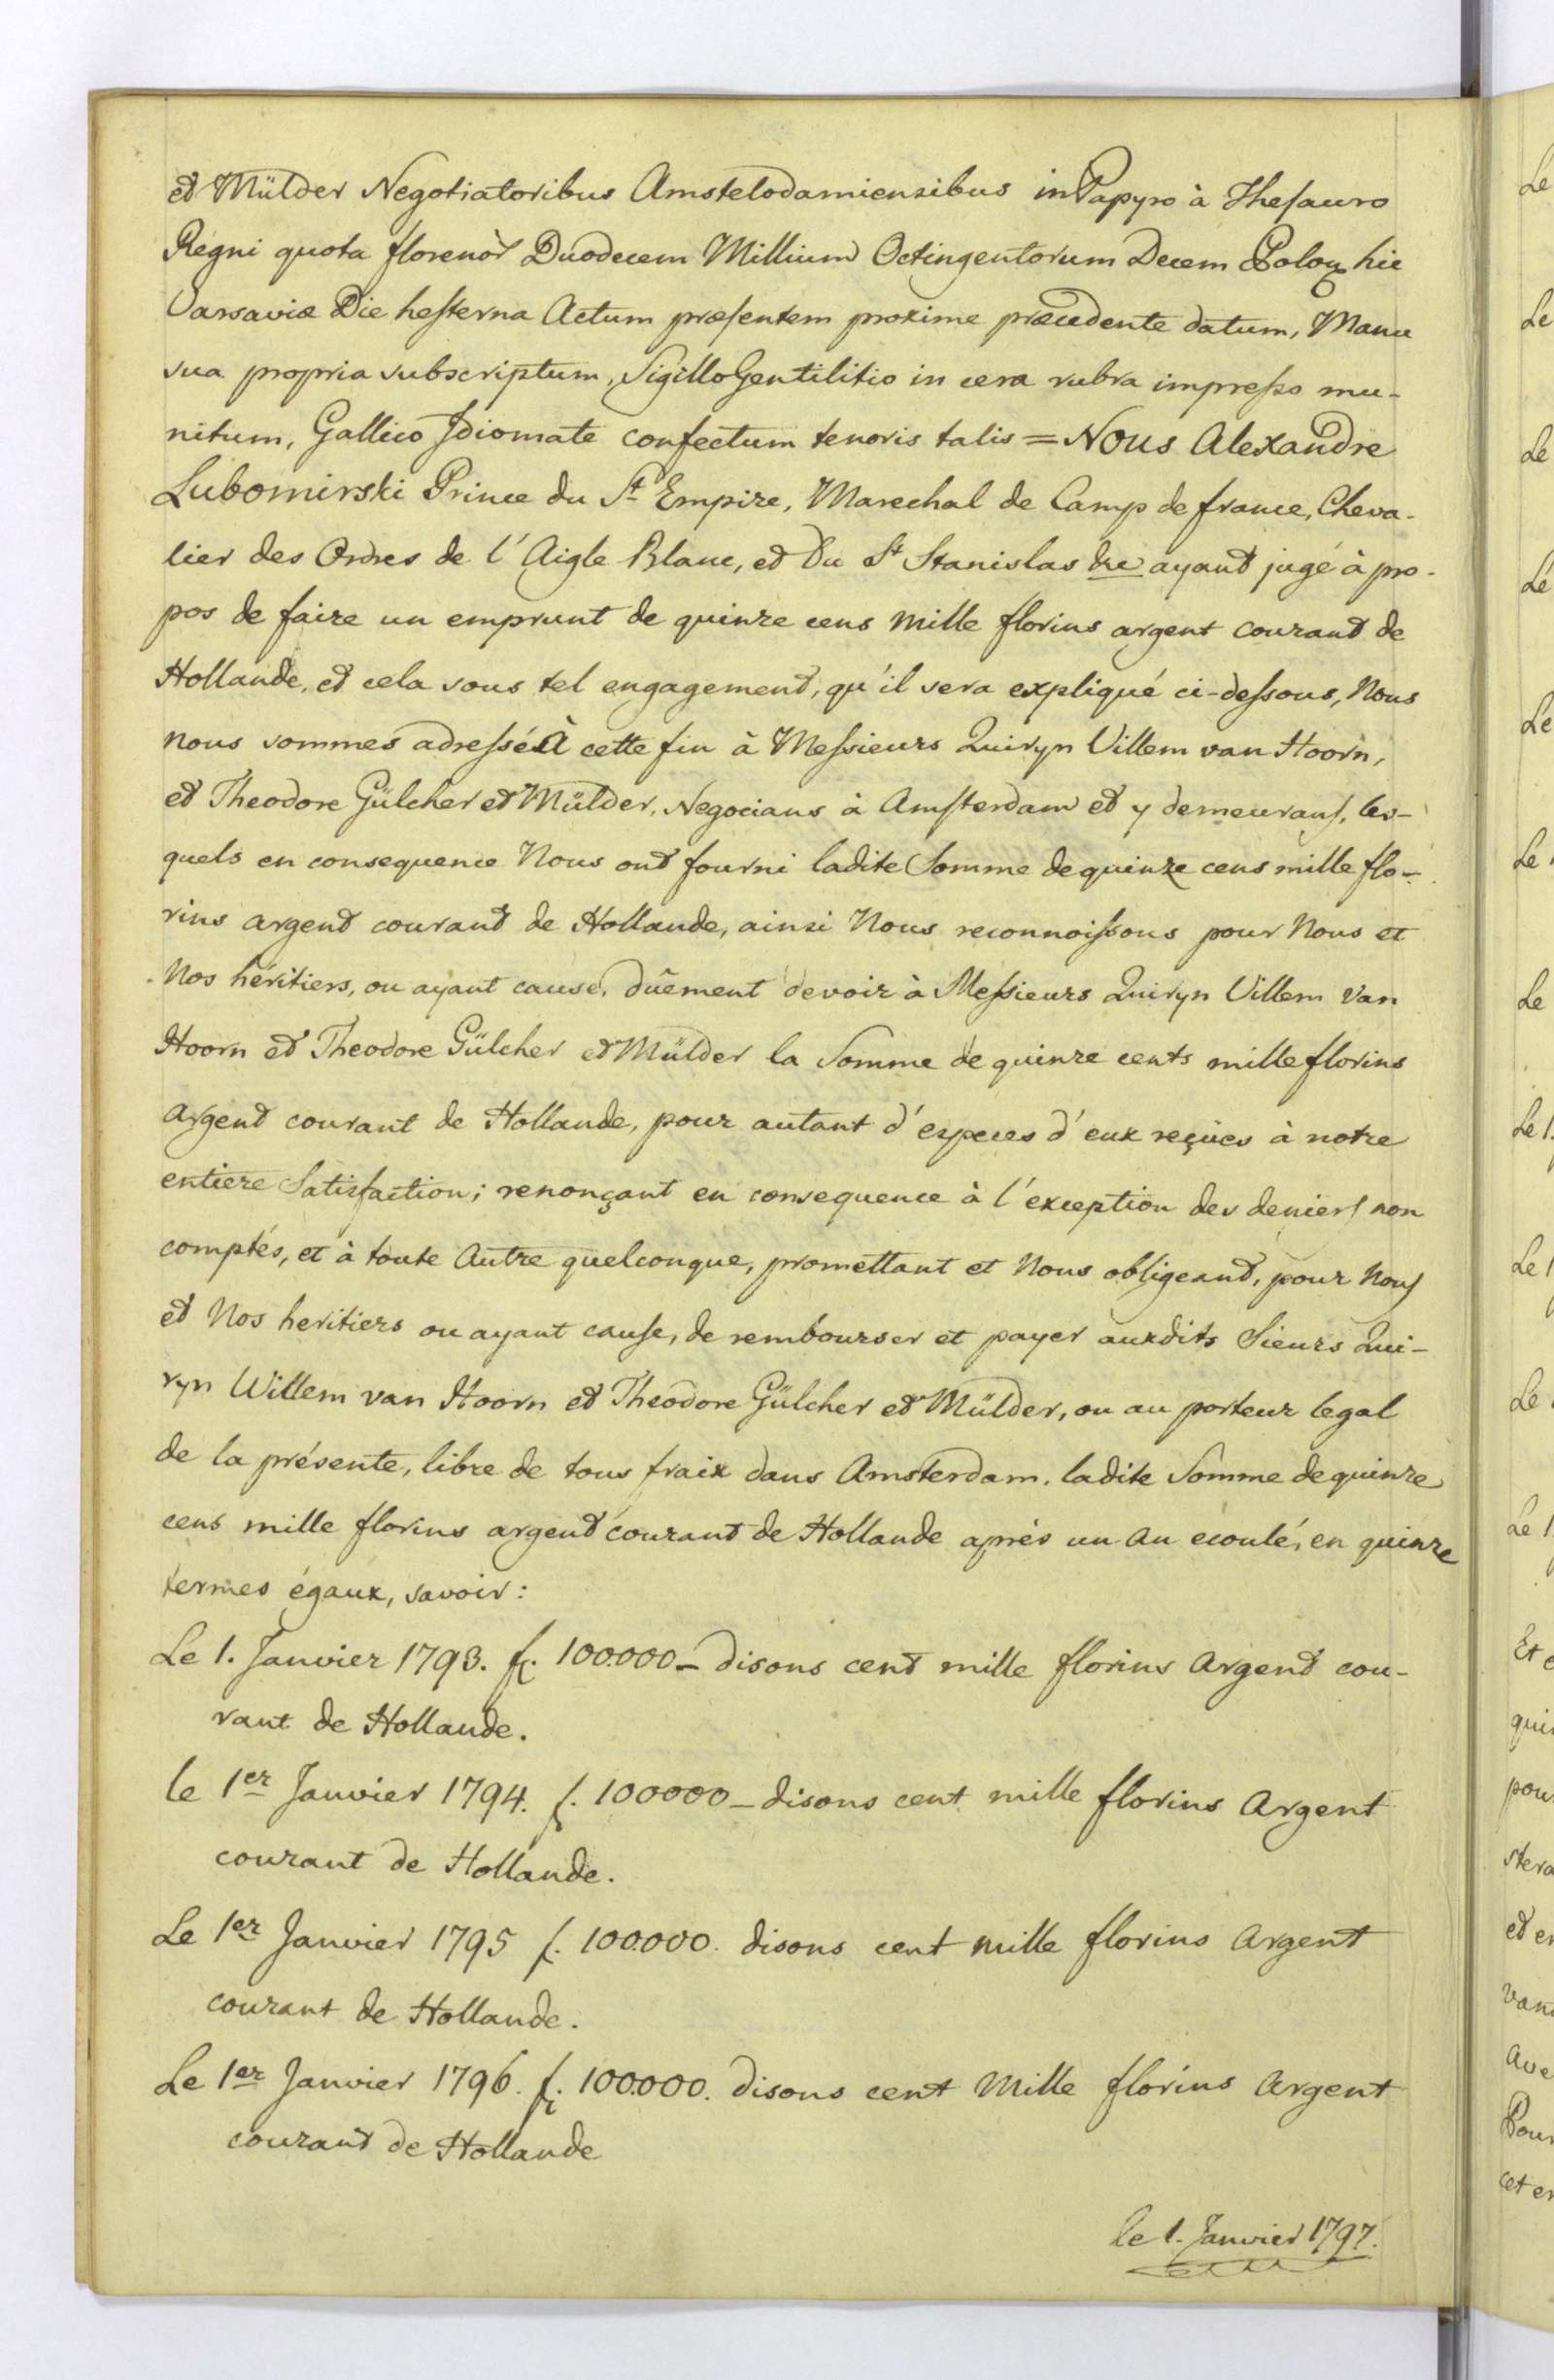 et Mülder Negotiatoribus Amstelodamiensibus in Papyro à Thesauro
Regni quota florenor Duodecem Millium Octingentorum Decem Polon hic
Varsaviæ Die hesterna Actum præsentem proxime præcedente datum, Manu
sua propria subscriptum, Sigillo Gentilitio in cera rubra impresso mu-
nitum, Gallico Idiomate confectum tenoris talis = Nous Alexandre
Lubomirski Prince du St Empire, Marechal de Camp de france, Cheva-
lier des Ordres de l'Aigle Blanc, et Du St Stanislas ayant jugé à pro-
pos de faire un emprunt de quinze cens mille florins argent courant de
Hollande, et cela sous tel engagement, qu'il sera expliqué ci-dessous, Nous
nous sommes adressés à cette fin à Messieurs Quiryn Villem van Hoorn,
et Theodore Gülcher et Mülder, Negocians à Amsterdam et y demeurans, les-
quels en consequence Nous ont fourni ladite Somme de quinze cens mille flo-
rins argent courant de Hollande, ainsi Nous reconnoissons pour Nous et
Nos héritiers, ou ayant cause, dûement devoir à Messieurs Quiryn Villem van
Hoorn et Theodore Gülcher et Mülder la Somme de quinze cents mille florins
argent courant de Hollande, pour autant d'especes d'eux reçües à notre
entiere Satisfaction; renonçant en consequence à l'exception des deniers non
comptés, et à toute Autre quelconque, promettant et Nous obligeant, pour Nous
et Nos heritiers ou ayant cause, de rembourser et payer auxdits Sieurs Qui-
ryn Willem van Hoorn et Theodore Gülcher et Mülder, ou au porteur legal
de la présente, libre de tous fraix dans Amsterdam, ladite Somme de quinze
cens mille florins argent courant de Hollande après un an ecoulé, en quinze
termes égaux, savoir:
Le 1. Janvier 1793. f. 100.000 - disons cent mille florins Argent cou-
rant de Hollande.
le 1er Janvier 1794. f. 100000 - disons cent mille florins Argent
courant de Hollande.
Le 1er Janvier 1795 f. 100.000. disons cent mille florins Argent
courant de Hollande.
Le 1er Janvier 1796. f. 100.000. disons cent Mille florins Argent
courant de Hollande
le 1. Janvier 1797.